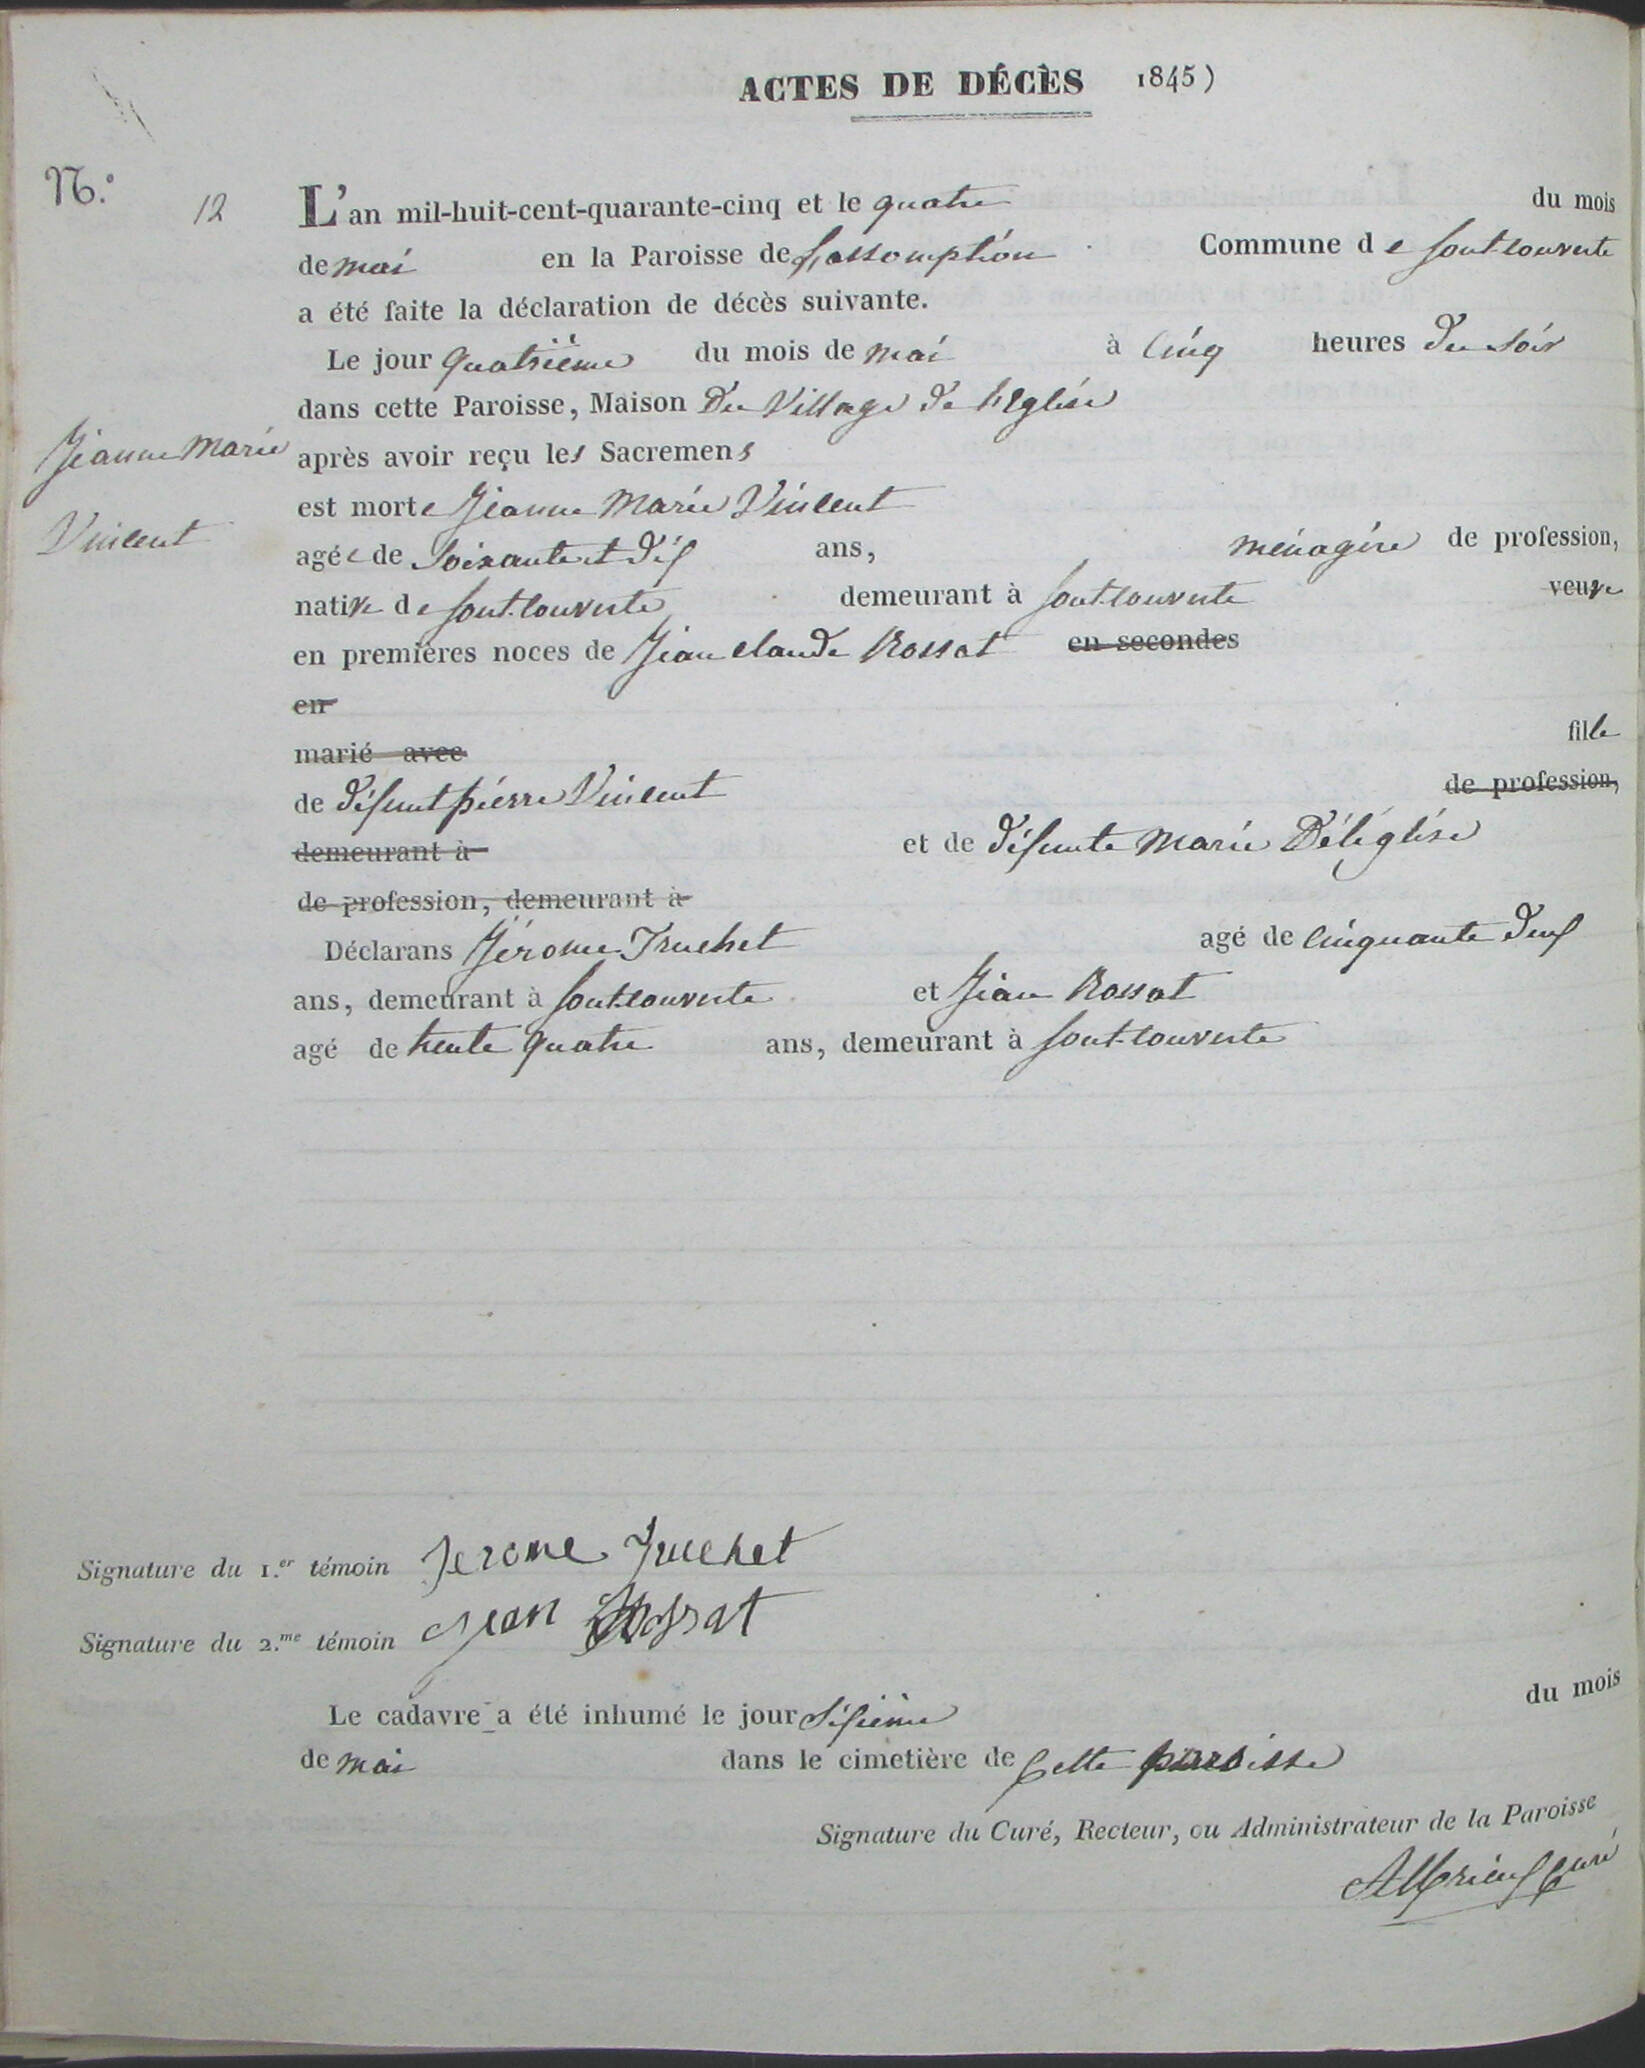 ACTES DE DÉCÈS 1845)
N.º 12 L'an mil-huit-cent-quarante-cinq et le quatre du mois
de mai en la Paroisse de L'assomption Commune de font-couverte
a été faite la déclaration de décès suivante.
Le jour quatrième du mois de mai à cinq heures du soir
dans cette Paroisse, Maison du Village de l'Eglise
Jeanne Marie
Vincent
après avoir reçu les Sacremens
est morte Jeanne Marie Vincent
agée de soixante et dix ans, ménagère de profession,
native de font-couverte demeurant à font-couverte veuve
en premières noces de Jean claude Rossat en secondes
en
marié avec fille
de défunt pierre Vincent de profession,
demeurant à et de défunte Marie Déléglise
de profession, demeurant à
Déclarans Jérome Truchet agé de cinquante deux
ans, demeurant à font-couverte et Jean Rossat
agé de trente quatre ans, demeurant à font-couverte
Signature du 1.er témoin Jerome Truchet
Signature du 2.me témoin Jean Rossat
Le cadavre a été inhumé le jour sixième du mois
de mai dans le cimetière de cette paroisse
Signature du Curé, Recteur, ou Administrateur de la Paroisse
curé